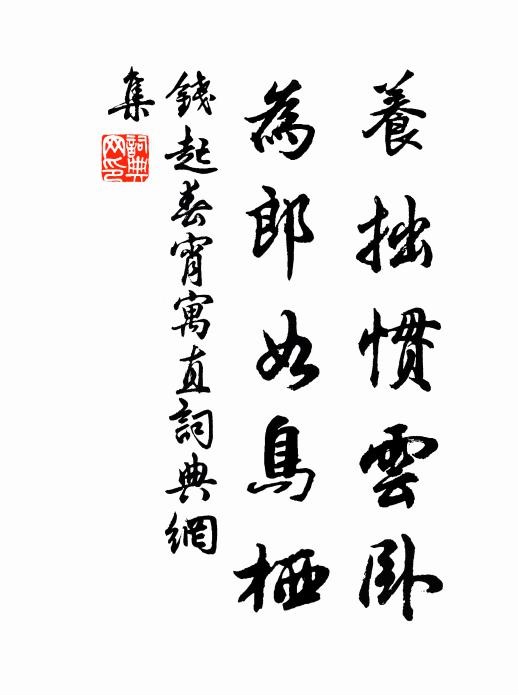 養拙慣雲卧
為郎如鳥栖
錢起春宵寓直詞典網
集
詞典
网印